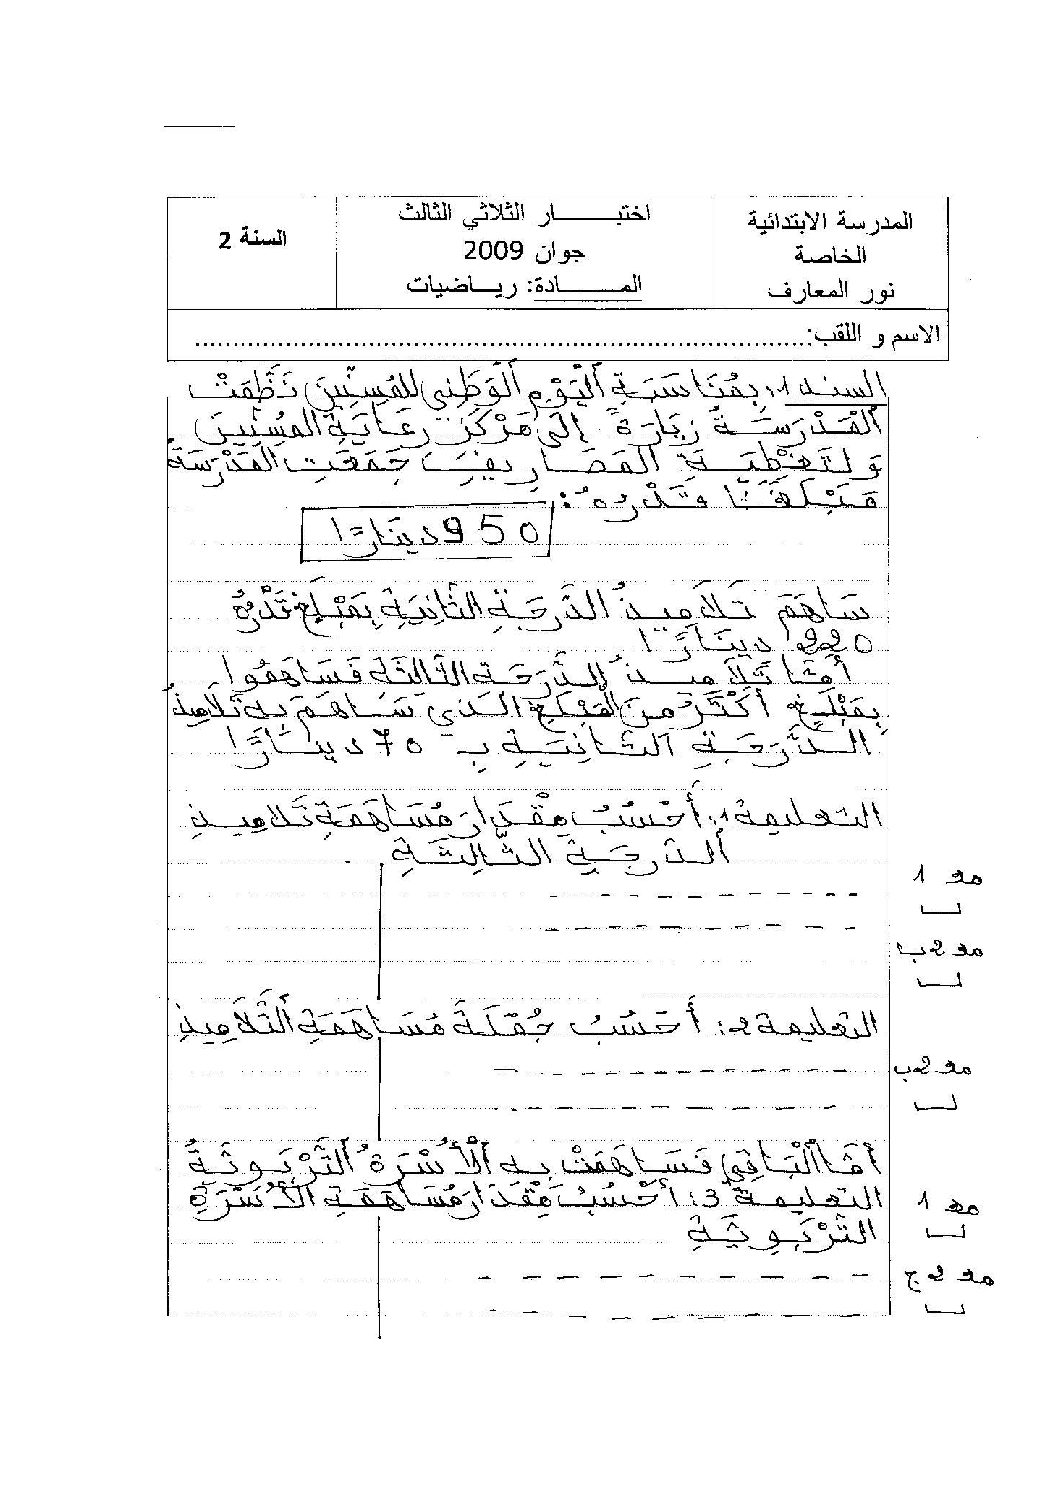 المدرسة الابتدائية
الخاصة
نور المعارف
اختبـــــار الثلاثي الثالث
جوان 2009
المـــــادة: ريـاضيات
السنة 2
الاسم و اللقب:......................................................................
السند 1: بِمُنَاسَبَةِ الْيَوْمِ الْوَطَنِي لِلْمُسِنِّينَ نَظَّمَتْ
الْمَدْرَسَةُ زِيَارَةً إِلَى مَرْكَزِ رِعَايَةِ الْمُسِنِّينَ
وَ لِتَغْطِيَةِ الْمَصَارِيفِ جَمَعَتِ الْمَدْرَسَةُ
مَبْلَغًا قَدْرُهُ:
950 دِينَارًا
سَاهَمَ تَلَامِيذُ الدَّرَجَةِ الثَّانِيَةِ بِمَبْلَغٍ قَدْرُهُ
220 دِينَارًا
أَمَّا تَلَامِيذُ الدَّرَجَةِ الثَّالِثَةِ فَسَاهَمُوا
بِمَبْلَغٍ أَكْثَرَ مِنَ الْمَبْلَغِ الَّذِي سَاهَمَ بِهِ تَلَامِيذُ
الدَّرَجَةِ الثَّانِيَةِ بِـ 70 دِينَارًا
التعليمة 1: أَحْسُبُ مِقْدَارَ مُسَاهَمَةِ تَلَامِيذِ
الدَّرَجَةِ الثَّالِثَةِ.
مع 1
مع 2 ب
التعليمة 2: أَحْسُبُ جُمْلَةَ مُسَاهَمَةِ التَّلَامِيذِ
مع 2 ب
أَمَّا الْبَاقِي فَسَاهَمَتْ بِهِ الْأُسْرَةُ التَّرْبَوِيَّةُ
التعليمة 3: أَحْسُبُ مِقْدَارَ مُسَاهَمَةِ الْأُسْرَةِ
التَّرْبَوِيَّةِ
مع 1
مع 2 ج